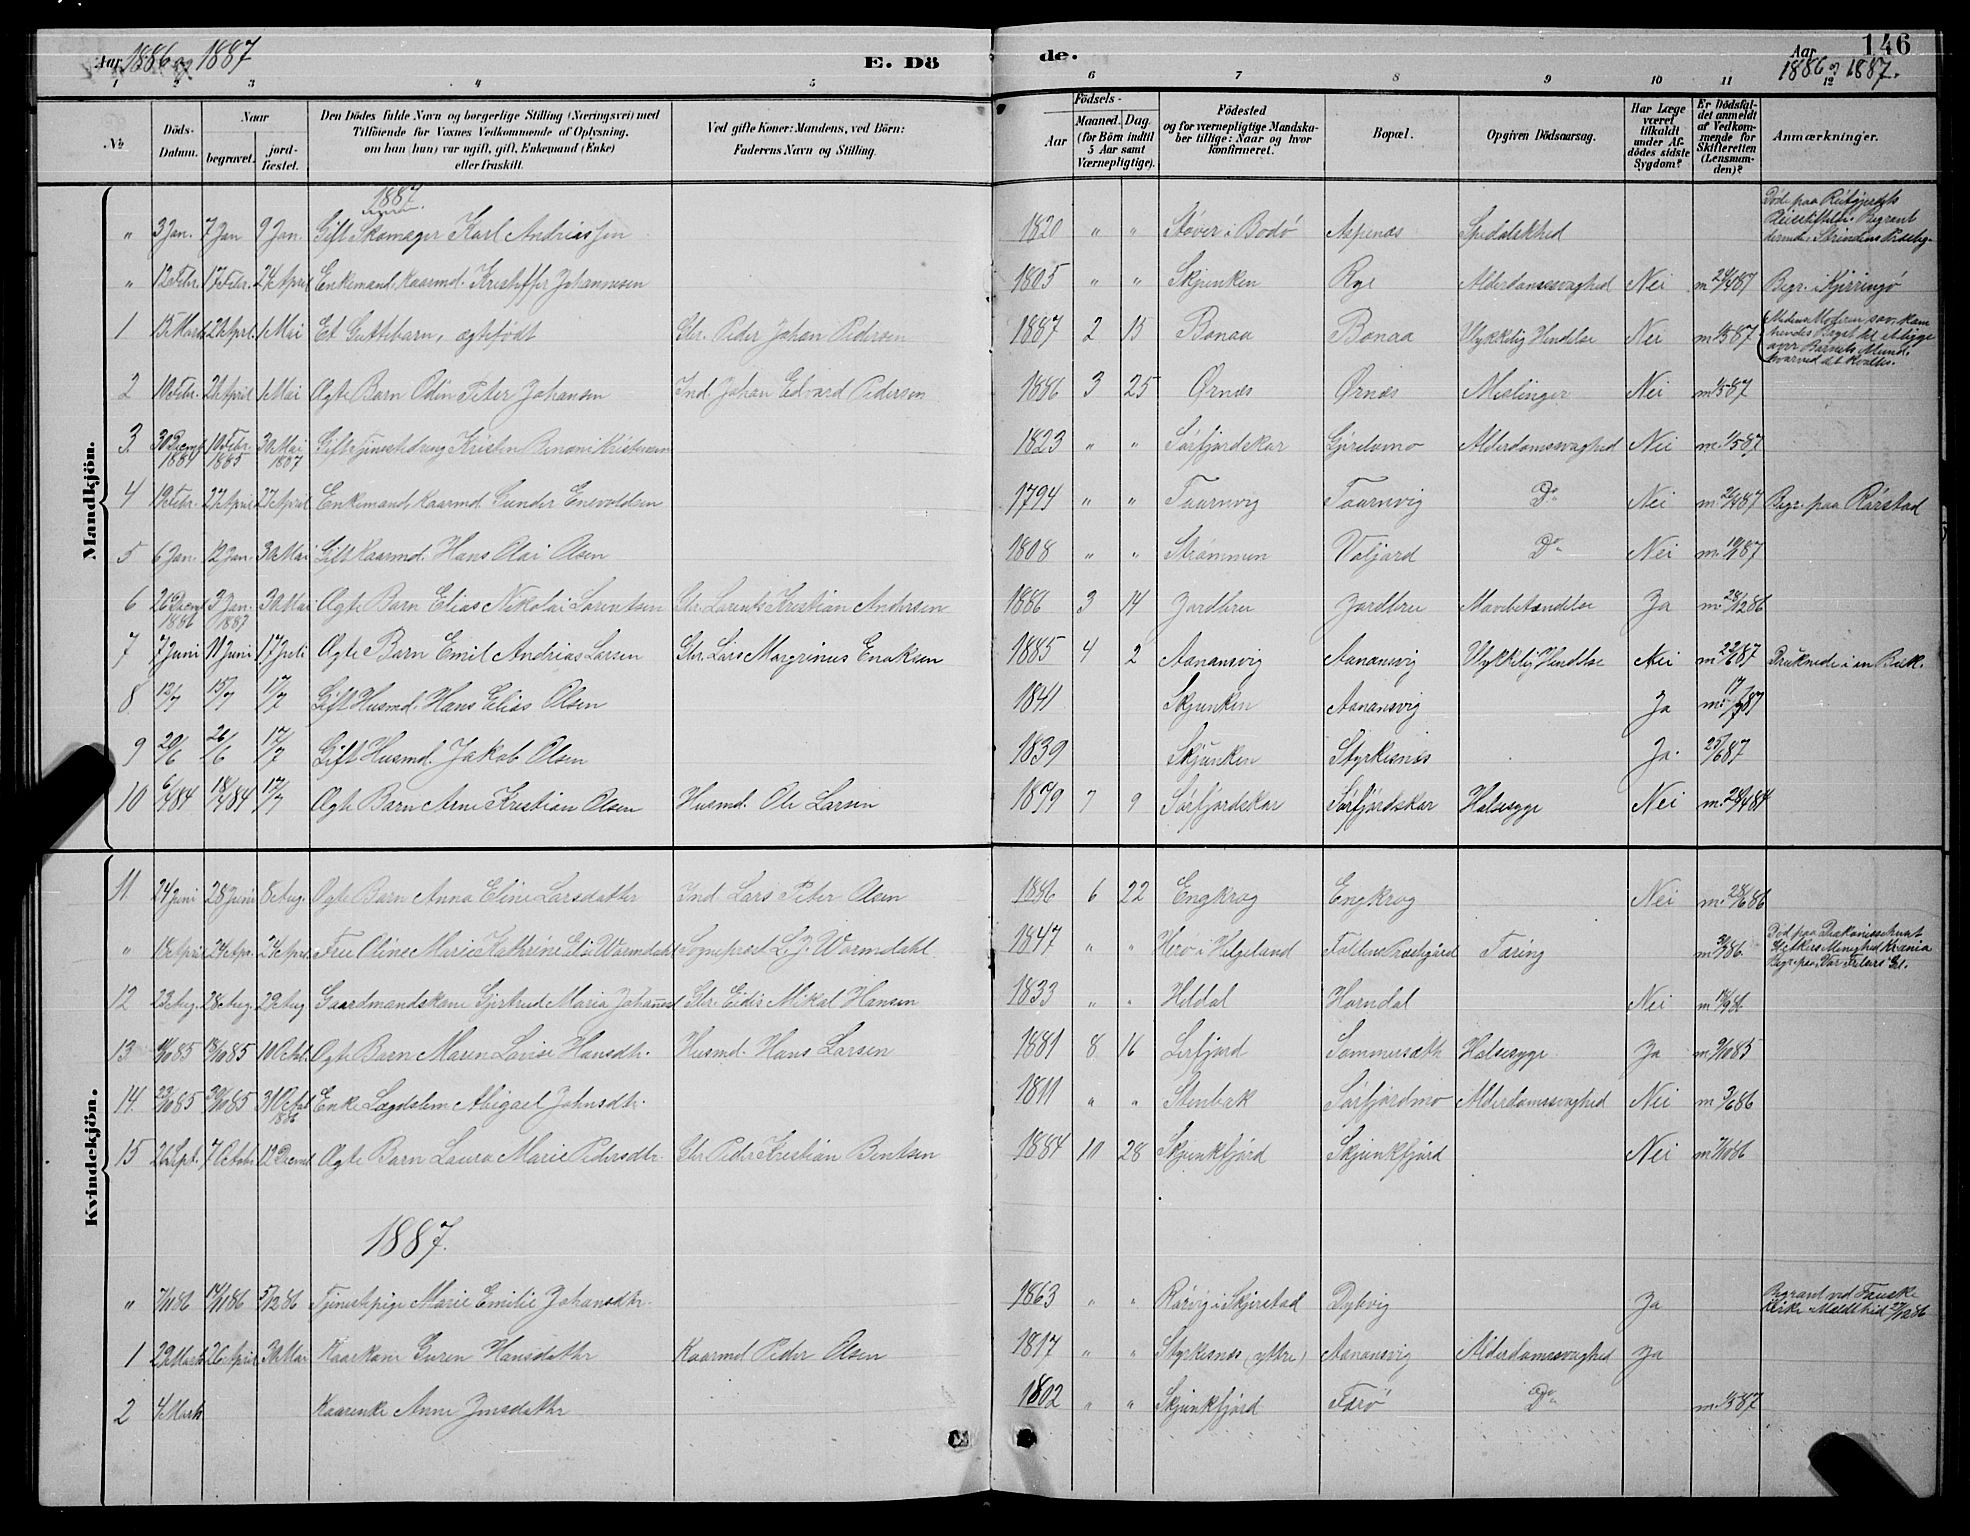 Aar 1886 og 1887
E. Dö
de.
Aar
1886 og 1887.
146
1 2 3 4 5 6 7 8 9 10 11 12
No
Döds-Datum.
Naar
begravet.
jord-fæstet.
Den Dödes fulde Navn og borgerlige Stilling (Næringsvei) med
Tilföiende for Voxnes Vedkommende af Oplysning,
om han (hun) var ugift, gift, Enkemand (Enke)
eller fraskilt.
Ved gifte Koner: Mandens, ved Börn:
Faderens Navn og Stilling.
Födsels-
Aar
Maaned. Dag.
(for Börn indtil
5 Aar samt
Værnepligtige).
Födested
og for værnepligtige Mandska-
ber tillige: Naar og hvor
konfirmeret.
Bopæl.
Opgiven Dödsaarsag.
Har Læge
været
tilkaldt
under Af-
dödes sidste
Sygdom?
Er Dödsfal-
det anmeldt
af Vedkom-
mende for
Skifteretten
(Lensman-
den)?
Anmærkninger.
Mandkjön.
1887
" 3 Jan. 7 Jan 9 Jan. Gift Skomager Karl Andrias Jen 1820 " " Støver i Bodø Aspenæs Spedalskhed Død paa Reitgjerdets Pleiestiftelse. Begravet
" 12 Febr. 17 Febr. 24 April Enkemand, Kaarmd. Kristoffer Johannesen 1805 " " Skjunken Rye Alderdomssvaghed Nei m 24/4 87 Begr. i Kjerringø
1 15 Marts 24 April 1 Mai Et Guttebarn, ægtefødt Str. Peder Johan Pedersen 1887 2 15 Bonaa Bonaa Ulykkelig Hendelse Nei m 1/5 87 Medens Moderen sov, kom hendes Bryst til at ligge over Barnets Mund, hvorved det kvaltes.
2 10 Febr. 24 April 1 Mai Ægte Barn Odin Peter Johansen Ind. Johan Edvard Pedersen 1886 3 25 Ørnæs Ørnæs Meslinger Nei m 1/5 87
3. 30 Decemb 1884 10 Febr. 1885 30 Mai 1887 Gift Kristen Benoni Kristensen 1823 " " Sørfjordskar Gjerelvmo Alderdomssvaghed Nei m. 1/5 87
4 19 Febr. 27 April 27 April Enkemand, Kaarmd. Gunder Enevoldsen 1794 " " Taarnvig Taarnvig Do Nei m. 26/4 87 Begr. paa Rørstad
5 6 Jan. 12 Jan. 30 Mai Gift Kaarmd. Hans Olai Olsen 1808 " " Strømmen Valjord Do Nei m. 10/1 87
6 26 Decemb 1886 3 Jan. 1887 30 Mai Ægte Barn Elias Nikolai Lorentsen Str. Lorents Kristian Andersen 1886 3 14 Jordbru Jordbru Mavebetændelse Ja m. 28/12 86
7 7 Juni 11 Juni 17 Juli Ægte Barn Emil Andrias Larsen Str. Lars Margrinus Enoksen 1885 4 2 Aanansvig Aanansvig Ulykkelig Hendelse Nei m 22/6 87 Druknede i en Bæk.
8 12/7 15/7 17/7 Gift Husmd. Hans Elias Olsen 1841 Skjunken Aanansvig Ja m. 17/7 87
9 20/6 26/6 17/7 Gift Husmd. Jakob Olsen 1839 Skjunken Styrkesnæs Ja. 25/6 87
10 6/4 84 18/4 84 17/7 Ægte Barn Arne Kristian Olsen Husmd. Ole Larsen 1879 7 9 Sørfjordskar Sørfjordskar Halssyge Nei m. 20/4 84
Kvindekjön.
11. 24 Juni 28 Juni 8 Aug. Ægte Barn Anna Eline Larsdatter Ind. Lars Peter Olsen 1886 6 22 Engkrog Engkrog Nei m. 28/6 86
" 18 April 24 Apr. 24 Apr. Fru Oline Marie Kathrine Lie Wormdahl Sogneprest L. J. Wormdahl 1847 " " Herø i Helgeland Foldens Præstgård Tæring m 3/7 86. Død paa Diakonissehuset
12 23 Aug. 28 Aug. 29 Aug Gaardmandskone Gjertrud Maria Johannesd Str. Eidis Mikal Hansen 1833 " " Heldal Horndal Nei m 14/9 86
13 10/10 85 18/10 85 10 Octbr. Ægte Barn Maren Lovise Hansdtr. Husmd. Hans Larsen 1881 8 16 Lerfjord Sommersæth Halssyge Ja m. 9/10 85
14. 23/10 85 30/10 85 31 Octbr 1886 Enke Lægdslem Abigael Johnsdtr. 1811 " " Stenbak Sørfjordmo Alderdomssvaghed Nei m 3/6 86
15 26 Sept. 7 Octobr 12 Decemb Ægte Barn Laura Marie Pedersdtr. Str. Peder Kristian Bentsen 1884 10 28 Skjunkfjord Skjunkfjord Nei m 7/10 86
1887.
" 7/11 86 14/11 86 5/12 86 Tjenestepige Marie Emilie Johansdtr. 1863 " " Rørvig i Skjerstad Dybvig Ja Begravet ved Fauske Kirke. Meldt hid 27/12 86
1 29 Marts 26 April 30 Mai Kaarkone Guren Hansdatter Kaarmd Peder Olsen 1817 " " Styrkesnæs (yttre) Aanansvig Alderdomssvaghed Ja
2 4 Marts Kaarenke Anne Jensdatter 1802 " " Skjunkfjord Færø Do m. 1/5 87